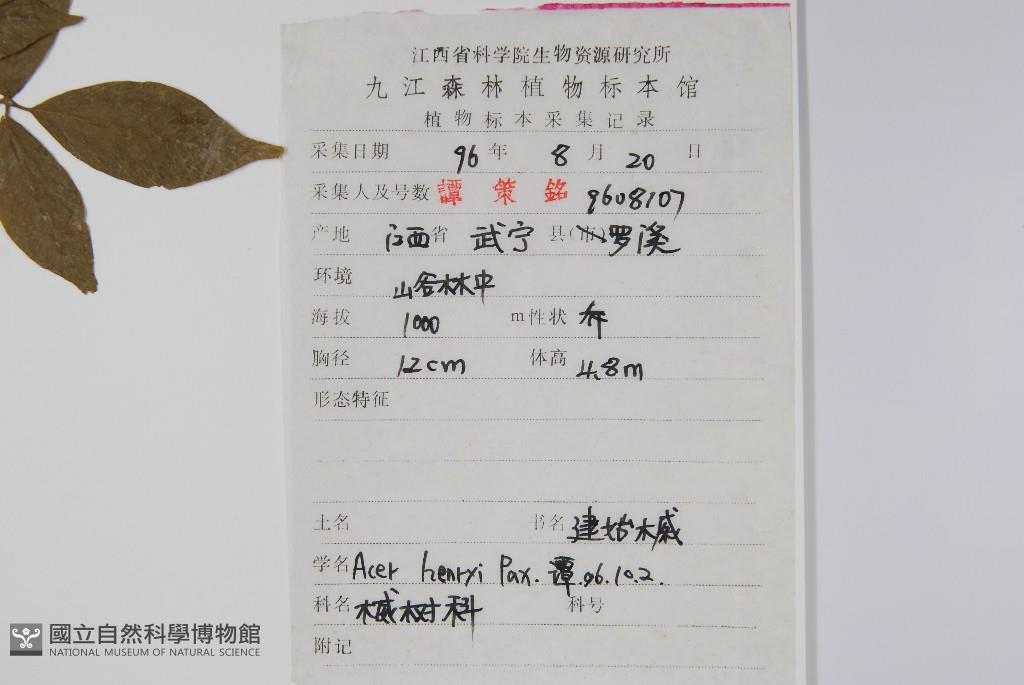 江西省科学院生物资源研究所
九江森林植物标本馆
植物标本采集记录
采集日期 96 年 8 月 20 日
采集人及号数 譚策銘 9608107
产地 江西省 武宁 县(市)罗溪
环境 山谷林中
海拔 1000 m 性状 乔
胸径 12cm 体高 4.8m
形态特征
土名 书名 建始槭
学名 Acer henryi Pax. 譚.96.10.2.
科名 槭树科 科号
附记
國立自然科學博物館
NATIONAL MUSEUM OF NATURAL SCIENCE